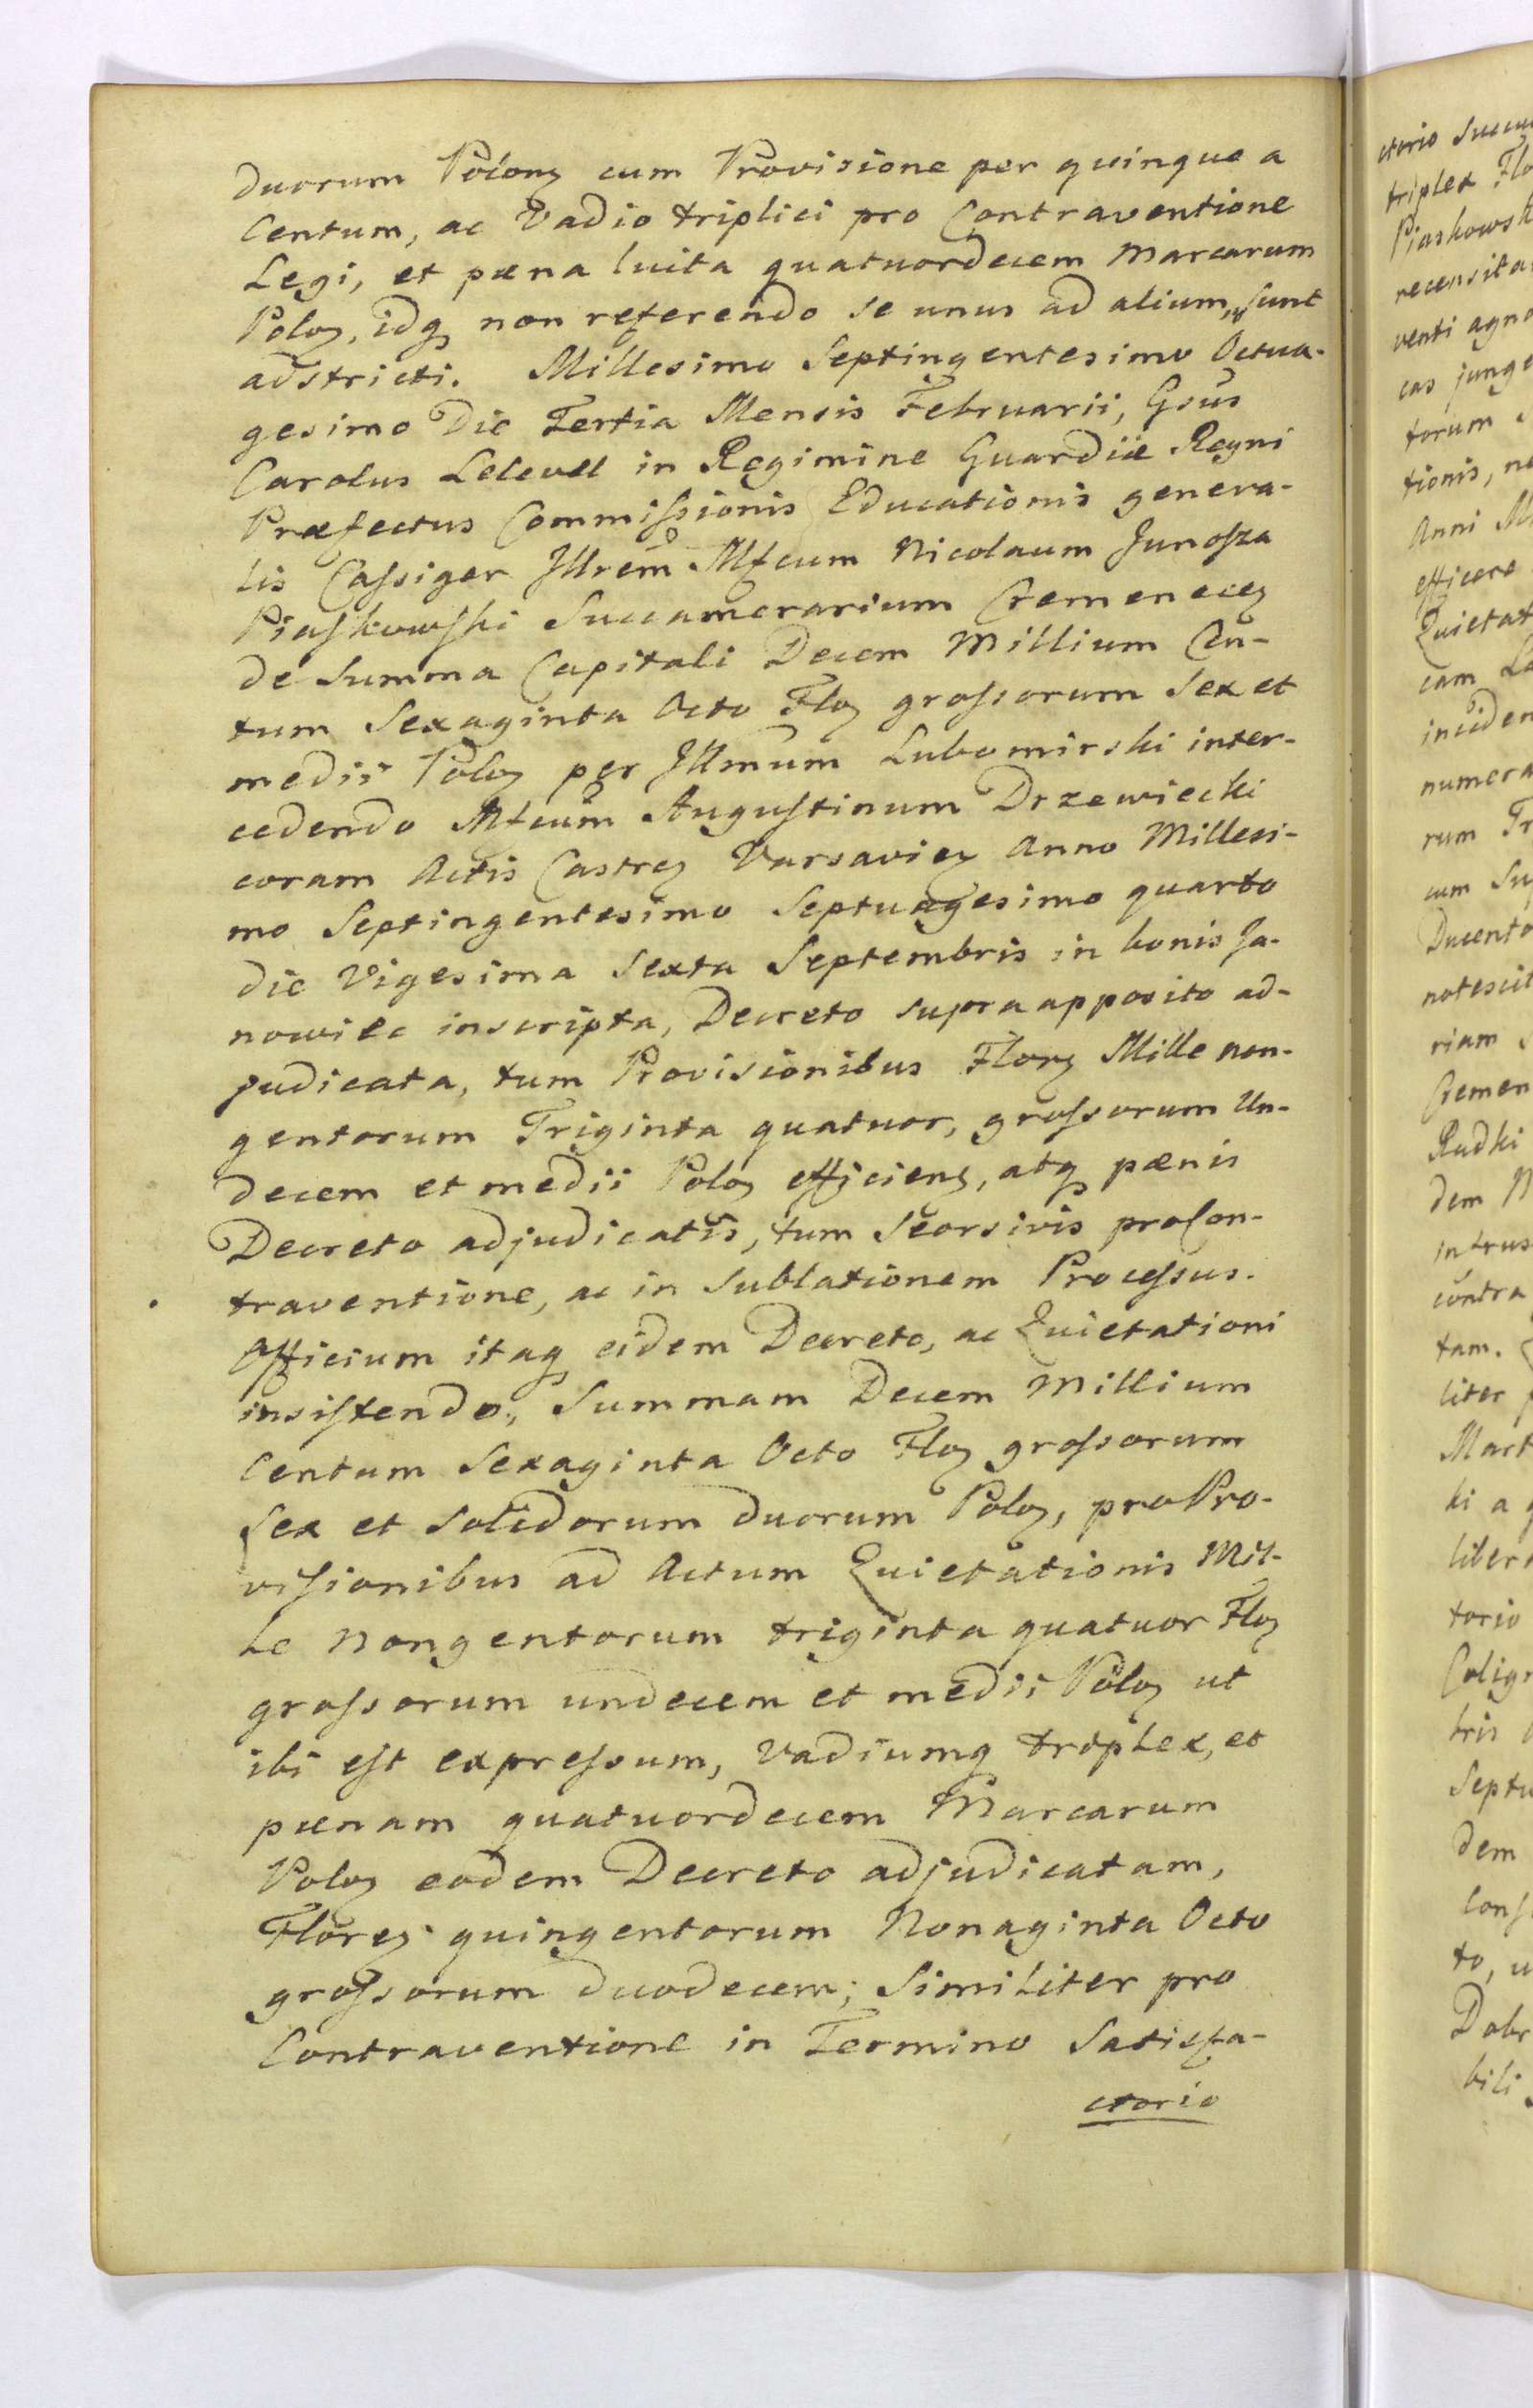 duorum Polonz cum Provisione per quinque a
Centum, ac Vadio triplici pro Contraventione
Legi, et pæna luita quatuordecem Marcarum
Poloz, idq non referendo se unus ad alium, sunt
adstricti. Millesimo Septingentesimo Octua-
gesimo Die Tertia Mensis Februarii, Gsus
Carolus Lelevel in Regimine Guardiæ Regni
Præfectus Commissionis Educationis genera-
lis Cassiger Illrem Mfcum Nicolaum Junosza
Piaskowski Succamerarium Cremenecez
de Summa Capitali Decem Millium Cen-
tum Sexaginta Octo Floz grossorum Sex et
medii Poloz per Illmum Lubomirski inter-
cedendo Mfcum Augustinum Drzewiecki
coram Actis Castrez Varsaviez Anno Millesi-
mo Septingentesimo Septuagesimo quarto
die Vigesima Sexta Septembris in bonis Ja-
nowiec inscripta, Decreto supra apposito ad-
judicata, tum Provisionibus Florz Mille non-
gentorum Triginta quatuor, grossorum Un-
decem et medii Poloz efficienz, atq pænis
Decreto adjudicatis, tum Seorsivis pro Con-
traventione, ac in Sublationem Processus.
Officium itaq eidem Decreto, ac Quietationi
insistendo, Summam Decem Millium
Centum Sexaginta Octo Floz grossorum
Sex et Solidorum duorum Poloz, pro Pro-
visionibus ad Actum Quietationis Mil-
le Nongentorum triginta quatuor Floz
grossorum undecem et medii Poloz ut
ibi est expressum, Vadiumq triplex, et
pænam quatuordecem Marcarum
Poloz eodem Decreto adjudicatam,
Florez quingentorum Nonaginta Octo
grossorum duodecem; Similiter pro
Contraventione in Termino Satisfa-
ctorio
ctorio
triplex
recensita
venti
torum
tionis,
Anni
efficere
cam
rum
cum
riam
Rudki
dem
contra
tam.
liter
ki a
torio
dem
to,